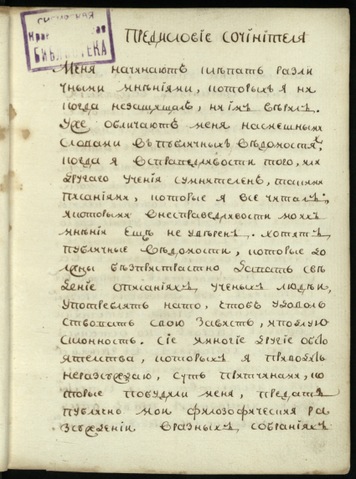 СИМБИРСКАЯ
БИБЛИОТЕКА
Предисловіе сочінітеля
Меня начинаютъ пятнать разли
чными мнѣніями, которыхъ я ни
когда незащищалъ, ни имъ вѣрилъ.
Уже обличаютъ меня насмешными
словами въ публичныхъ вѣдомостяхъ,
когда я всправедливости того, или
другаго ученія сумнителенъ, такими
писаніями, которые я все читалъ,
и которыхъ внесправедливости моихъ
мнѣнія ещѣ не увѣренъ. хотятъ
публичные вѣдомости, которые до
лжны безпристрастно достать свѣ
деніе о писаніяхъ ученыхъ людей,
употреблять нато, чтобъ удоволь
ствовать свою зависть, и подлую
склонность. Сіе и многіе другіе обсто
ятелства, которыхъ я привозъ
неразсуждаю, суть притчиною, ко
торые побудили меня, предать
публично мои философическія ра
зсужденіи вразныхъ собраніяхъ